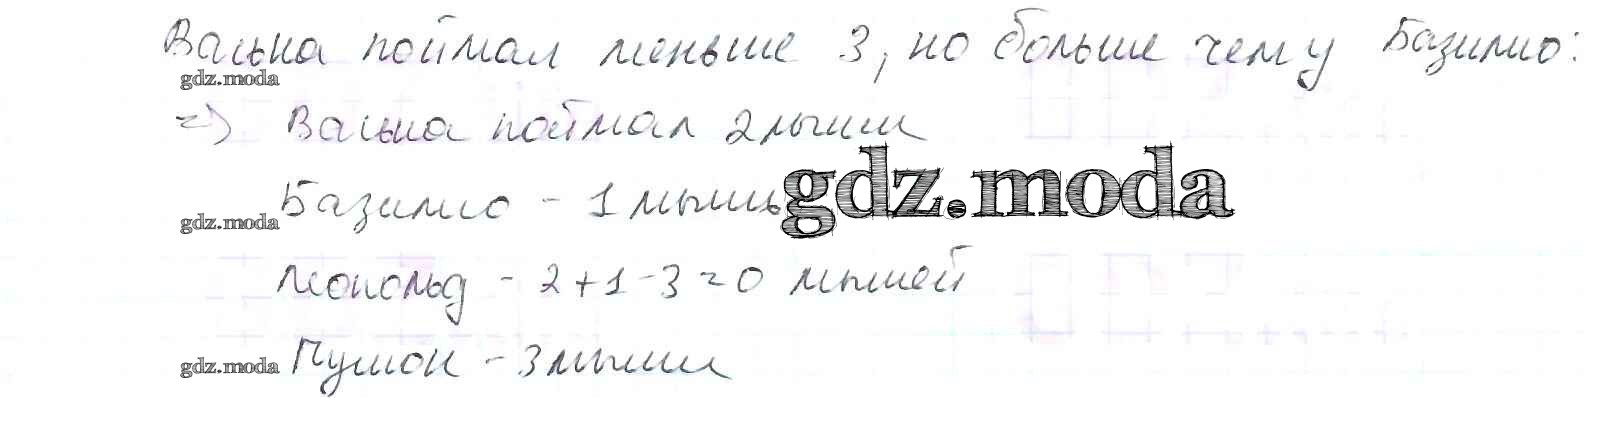 Васька поймал меньше 3, но больше чем у Базилио:
gdz.moda
=> Васька поймал 2 мыши
gdz.moda
Базилио - 1 мышь
gdz.moda
Леопольд - 2+1-3=0 мышей
Пушок - 3 мыши
gdz.moda